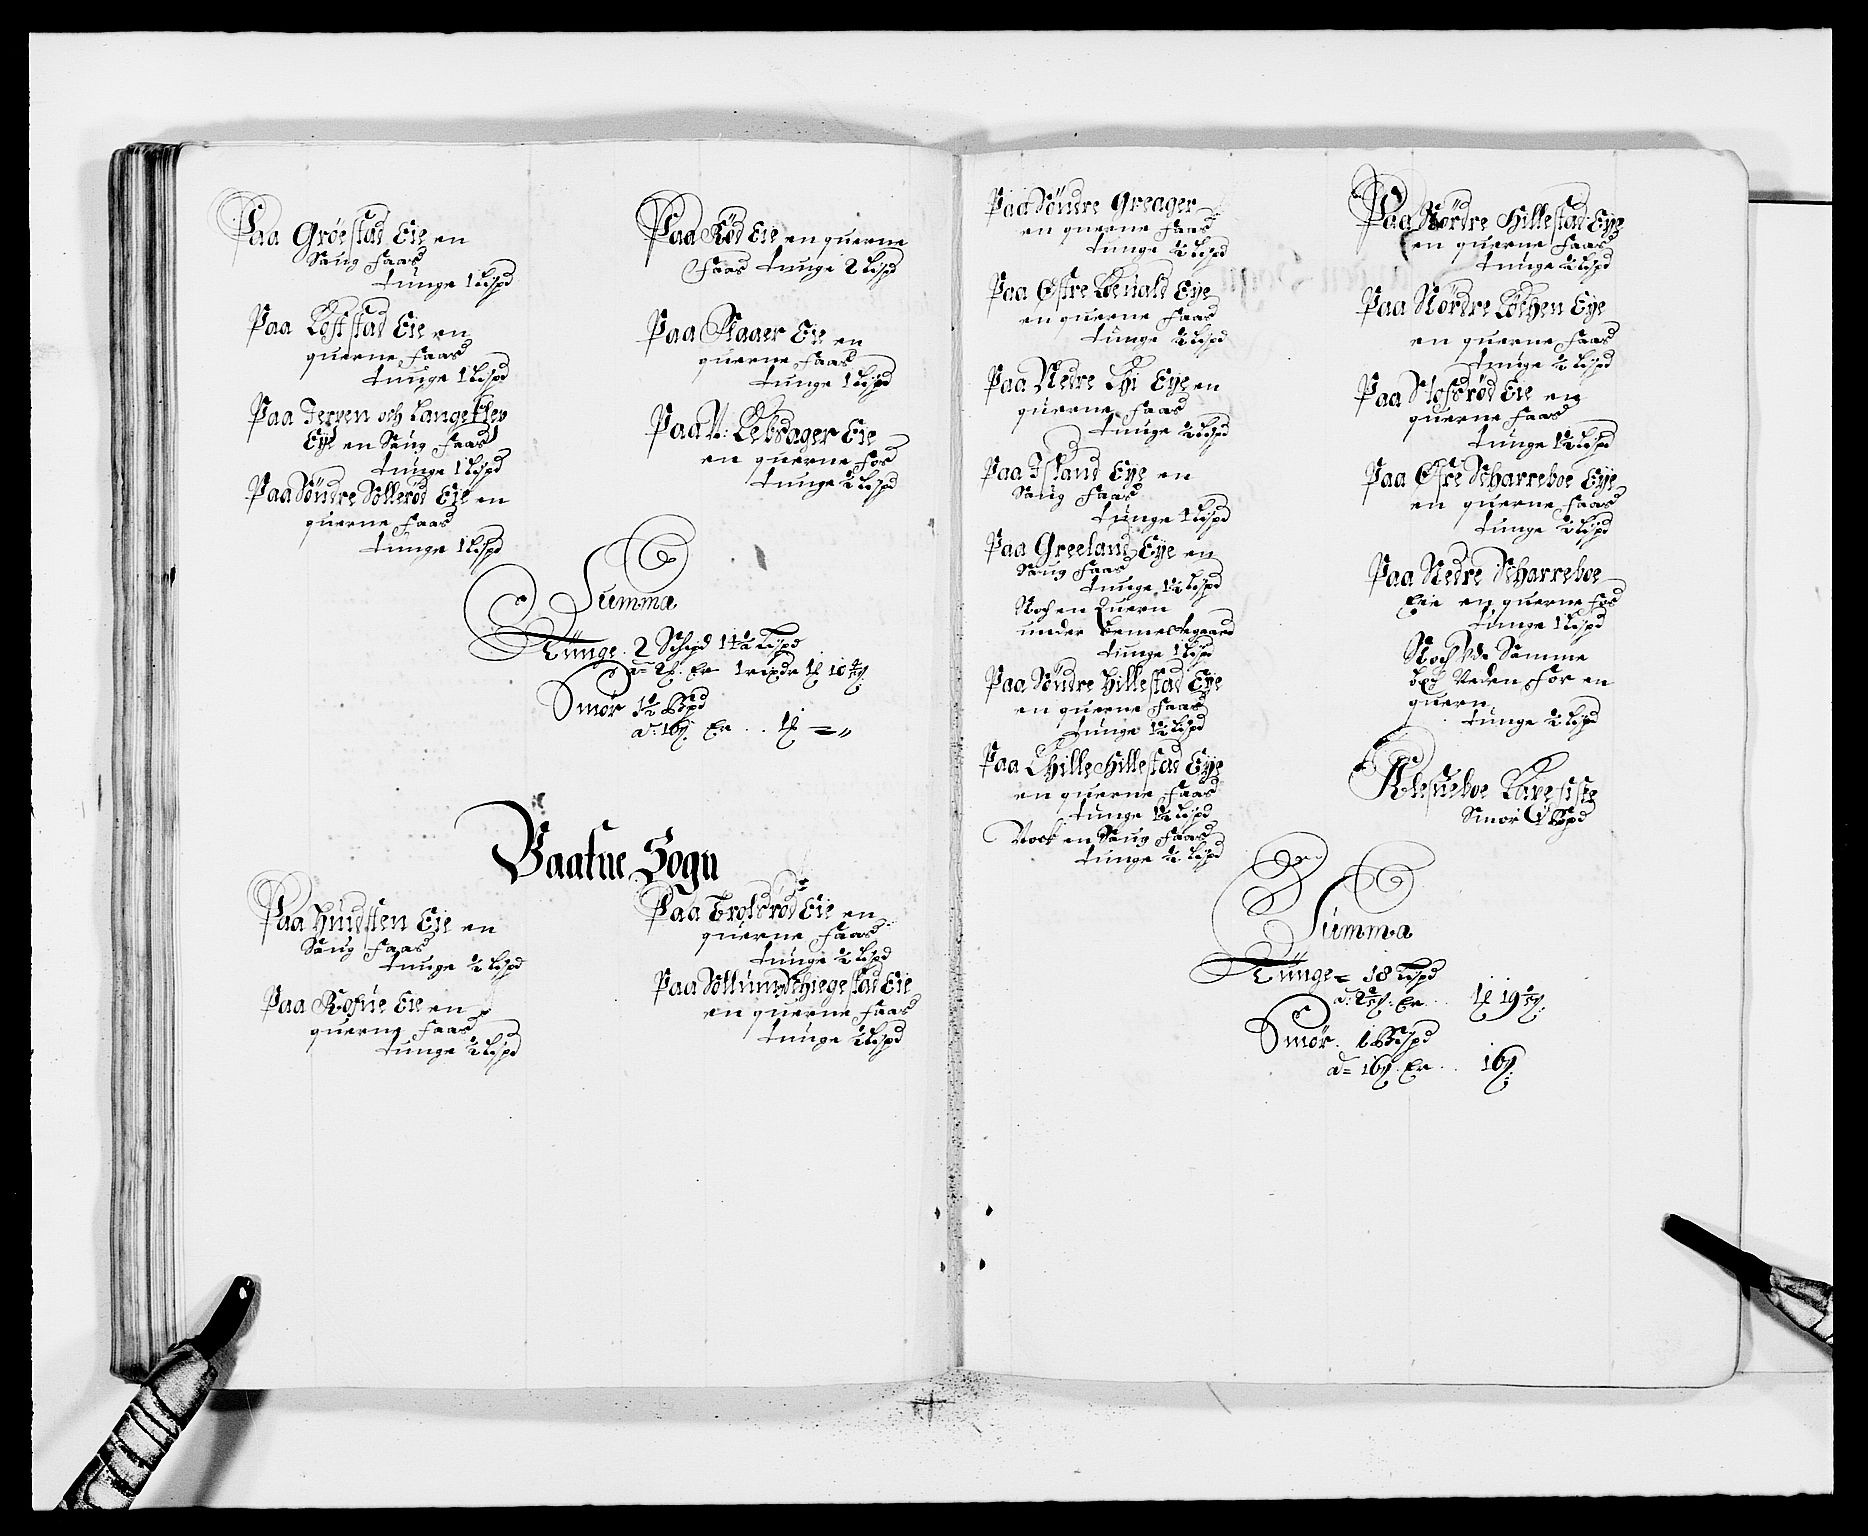 Paa Grøestad Eie en
Saug faas
tunge 1 Lispd
Paa Løftstad Eie en
querne faas
tunge 1 Lispd
Paa Jerven och Langeklev
Eye en Saug faas
tunge 1 Lispd
Paa Søndre Sollerød Eie en
querne faas
tunge 1 Lispd
Paa Rød Eie en querne
faas tunge 2 Lispd
Paa Klaaer Eie en
querne faas
tunge 1 Lispd
Paa N: Lebsager Eie
en querne fos
tunge ½ Lispd
Summa
Tünge. 2 Schpd 14½ Lispd
Smør 1½ Bspd
Baafue Sogn
Paa Huidsten Eie en
Saug faas
tunge ½ Lispd
Paa Rofue Eie en
querne faas
tunge ½ Lispd
Paa Trolsrød Eie en
querne faas
tunge ½ Lispd
Paa Sollum Schiegestad Eie
en querne faas
tunge ½ Lispd
Paa Søndre Greager
en querne faas
tunge ½ Lispd
Paa Østre Løeuald Eye
en querne faas
tunge ½ Lispd
Paa Nedre Lyi Eye en
querne faas
tunge ½ Lispd
Paa Island Eye en
Saug faas
tunge 1 Lispd
Paa Greeland Eye en
Saug faas
tunge 1½ Lispd
Noch en Quern
under
tunge 1 Lispd
Paa Søndre Hillestad Eye
en querne faas
tunge 1½ Lispd
Paa Lhille Hillestad Eye
en querne faas
tunge 1½ Lispd
Nock en Saug faas
tunge ½ Lispd
Paa Nørdre Hillestad Eye
en querne faas
tunge ½ Lispd
Paa Nørdre Løchen Eye
en querne faas
tunge ½ Lispd
Paa Slofsrød Eie en
querne faas
tunge 1½ Lispd
Paa Øfre Scharreboe Eye
en querne faas
tunge ½ Lispd
Paa Nedre Scharreboe
Eie en querne fos
tunge 1 Lispd
Noch Samme
Neden for en
quern
tunge ½ Lispd
Smør 1 Bspd
Summa
Tünge 18 Lispd
Smør. 1 Bspd